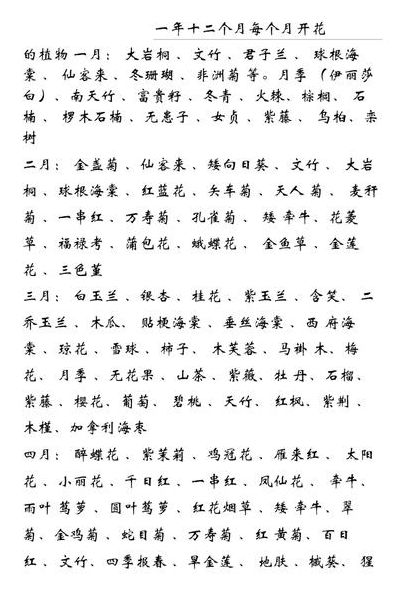 一年十二个月每个月开花
的植物一月：大岩桐、文竹、君子兰、球根海
棠、仙客来、冬珊瑚、非洲菊等。月季（伊丽莎
白）、南天竹、富贵籽、冬青、火棘、棕榈、石
楠、椤木石楠、无患子、女贞、紫藤、乌桕、栾
树
二月：金盏菊、仙客来、矮向日葵、文竹、大岩
桐、球根海棠、红蓝花、矢车菊、天人菊、麦秆
菊、一串红、万寿菊、孔雀菊、矮牵牛、花菱
草、福禄考、蒲包花、蛾蝶花、金鱼草、金莲
花、三色堇
三月：白玉兰、银杏、桂花、紫玉兰、含笑、二
乔玉兰、木瓜、贴梗海棠、垂丝海棠、西府海
棠、琼花、雪球、柿子、木芙蓉、马褂木、梅
花、月季、无花果、山茶、紫薇、牡丹、石榴、
紫藤、樱花、葡萄、碧桃、天竹、红枫、紫荆、
木槿、加拿利海枣
四月：醉蝶花、紫茉莉、鸡冠花、雁来红、太阳
花、小丽花、千日红、一串红、凤仙花、牵牛、
雨叶茑萝、圆叶茑萝、红花烟草、矮牵牛、翠
菊、金鸡菊、蛇目菊、万寿菊、红黄菊、百日
红、文竹、四季报春、旱金莲、地肤、槭葵、猩